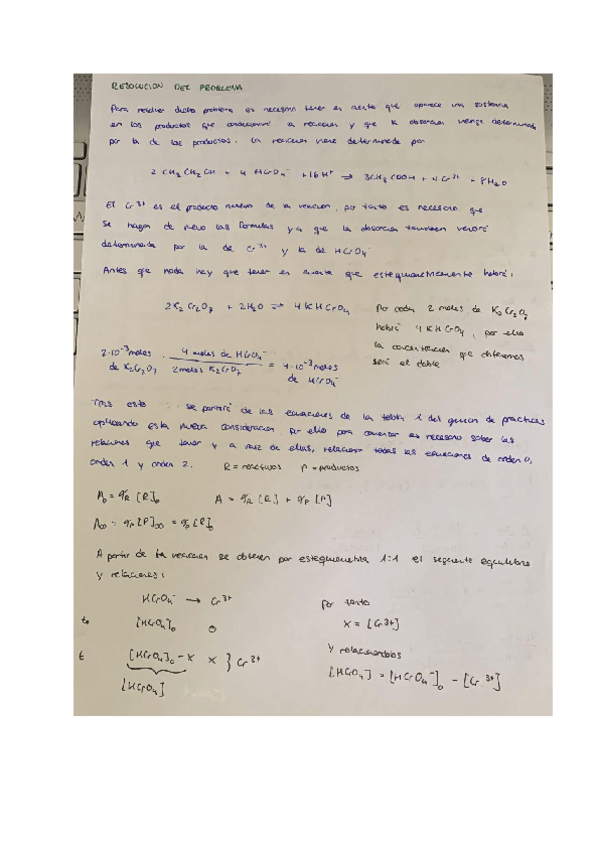 RESOLUCION DEL PROBLEMA
Para resolver dicho problema es necesario tener en cuenta que aparece una sustancia
en los productos que condicionará la reacción y que la absorción venga determinada
por la de los productos. La reacción viene determinada por
2 CH3CH2OH + 4 HCrO4⁻ + 16H⁺ ⇌ 3CH3COOH + 4Cr³⁺ + 8H2O
El Cr³⁺ es el producto nuevo de la reacción, por tanto es necesario que
se hagan de nuevo las formulas ya que la absorción también vendrá
determinada por la de Cr³⁺ y la de HCrO4⁻
Antes que nada hay que tener en cuenta que estequiometricamente habrá:
2K2Cr2O7 + 2H2O ⇌ 4KHCrO4
Por cada 2 moles de K2Cr2O7
habrá 4 KHCrO4, por ello
la concentración que obtenemos
será el doble
2·10⁻³ moles de K2Cr2O7 · 4 moles de HCrO4⁻ / 2 moles K2Cr2O7 = 4·10⁻³ moles de HCrO4⁻
Tras esto se partirá de las ecuaciones de la tabla 1 del guion de practicas
aplicando esta nueva consideración. Por ello para comenzar es necesario saber las
relaciones que tener y a raiz de ellas, relacionar todas las ecuaciones de orden 0,
orden 1 y orden 2. R = reactivos P = productos
A0 = [R]0 A = [R] + [P]
A∞ = [P]∞ = [R]0
A partir de la reacción se obtienen por estequiometria 1:1 el siguiente equilibrio
y relaciones:
HCrO4⁻ → Cr³⁺
t0 [HCrO4⁻]0 0
t [HCrO4⁻]0 - x x } Cr³⁺
[HCrO4⁻]
Por tanto
x = [Cr³⁺]
y relacionandolos
[HCrO4⁻] = [HCrO4⁻]0 - [Cr³⁺]